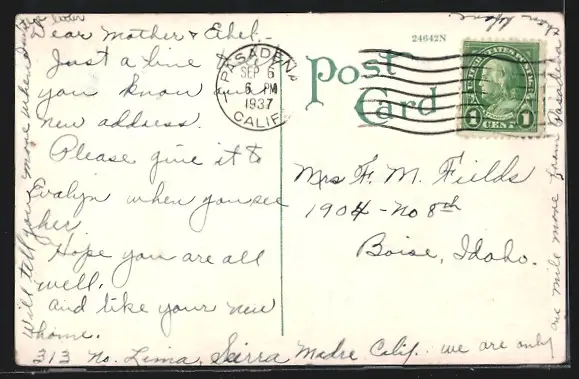 Dear Mother & Ethel:-
Just a line to let
you know our
new address.
Please give it to
Evalyn when you see
her.
Hope you are all
well.
and like your new
home.
313 No. Lima, Sierra Madre Calif. we are only
one mile more from Pasadena
than before
Will tell you more when I write
later
PASADENA
SEP 6
6 PM
1937
CALIF.
24642N
Post
Card
UNITED STATES POSTAGE
1 CENT 1
Mrs F. M. Fields
1904 - No 8th
Boise, Idaho.